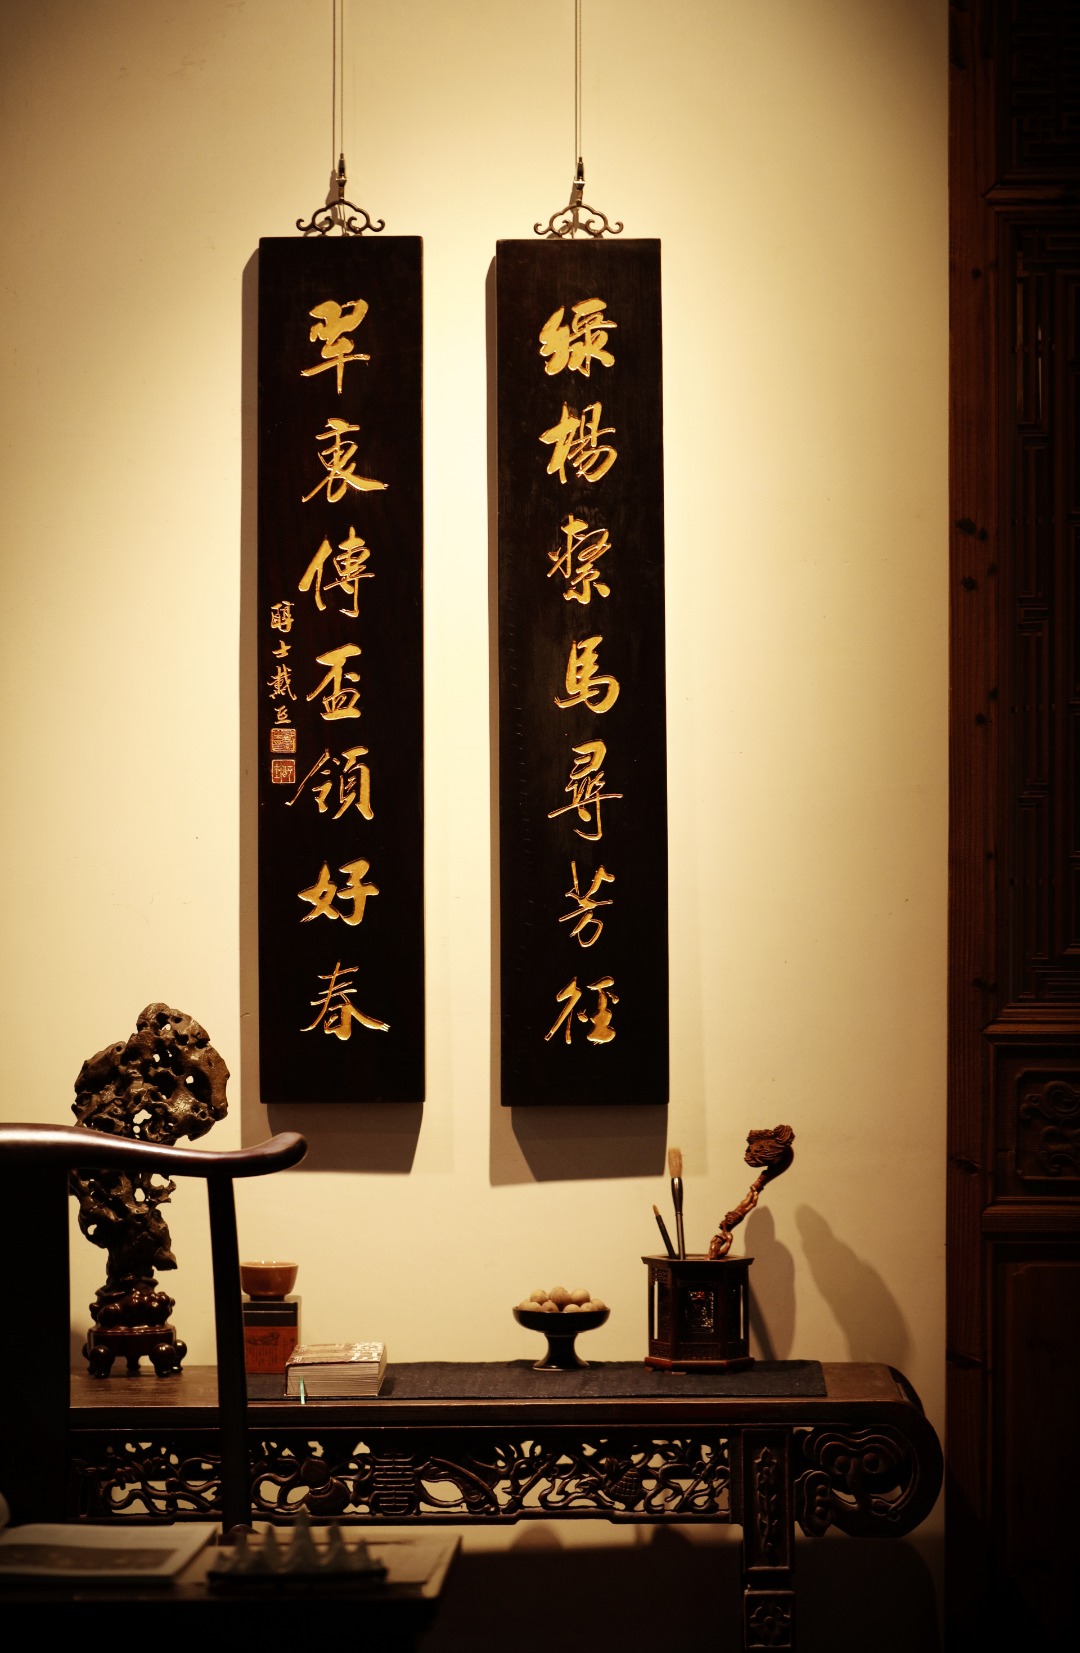 綠楊繫馬尋芳徑
翠袖傳盃領好春
醇士戴熙